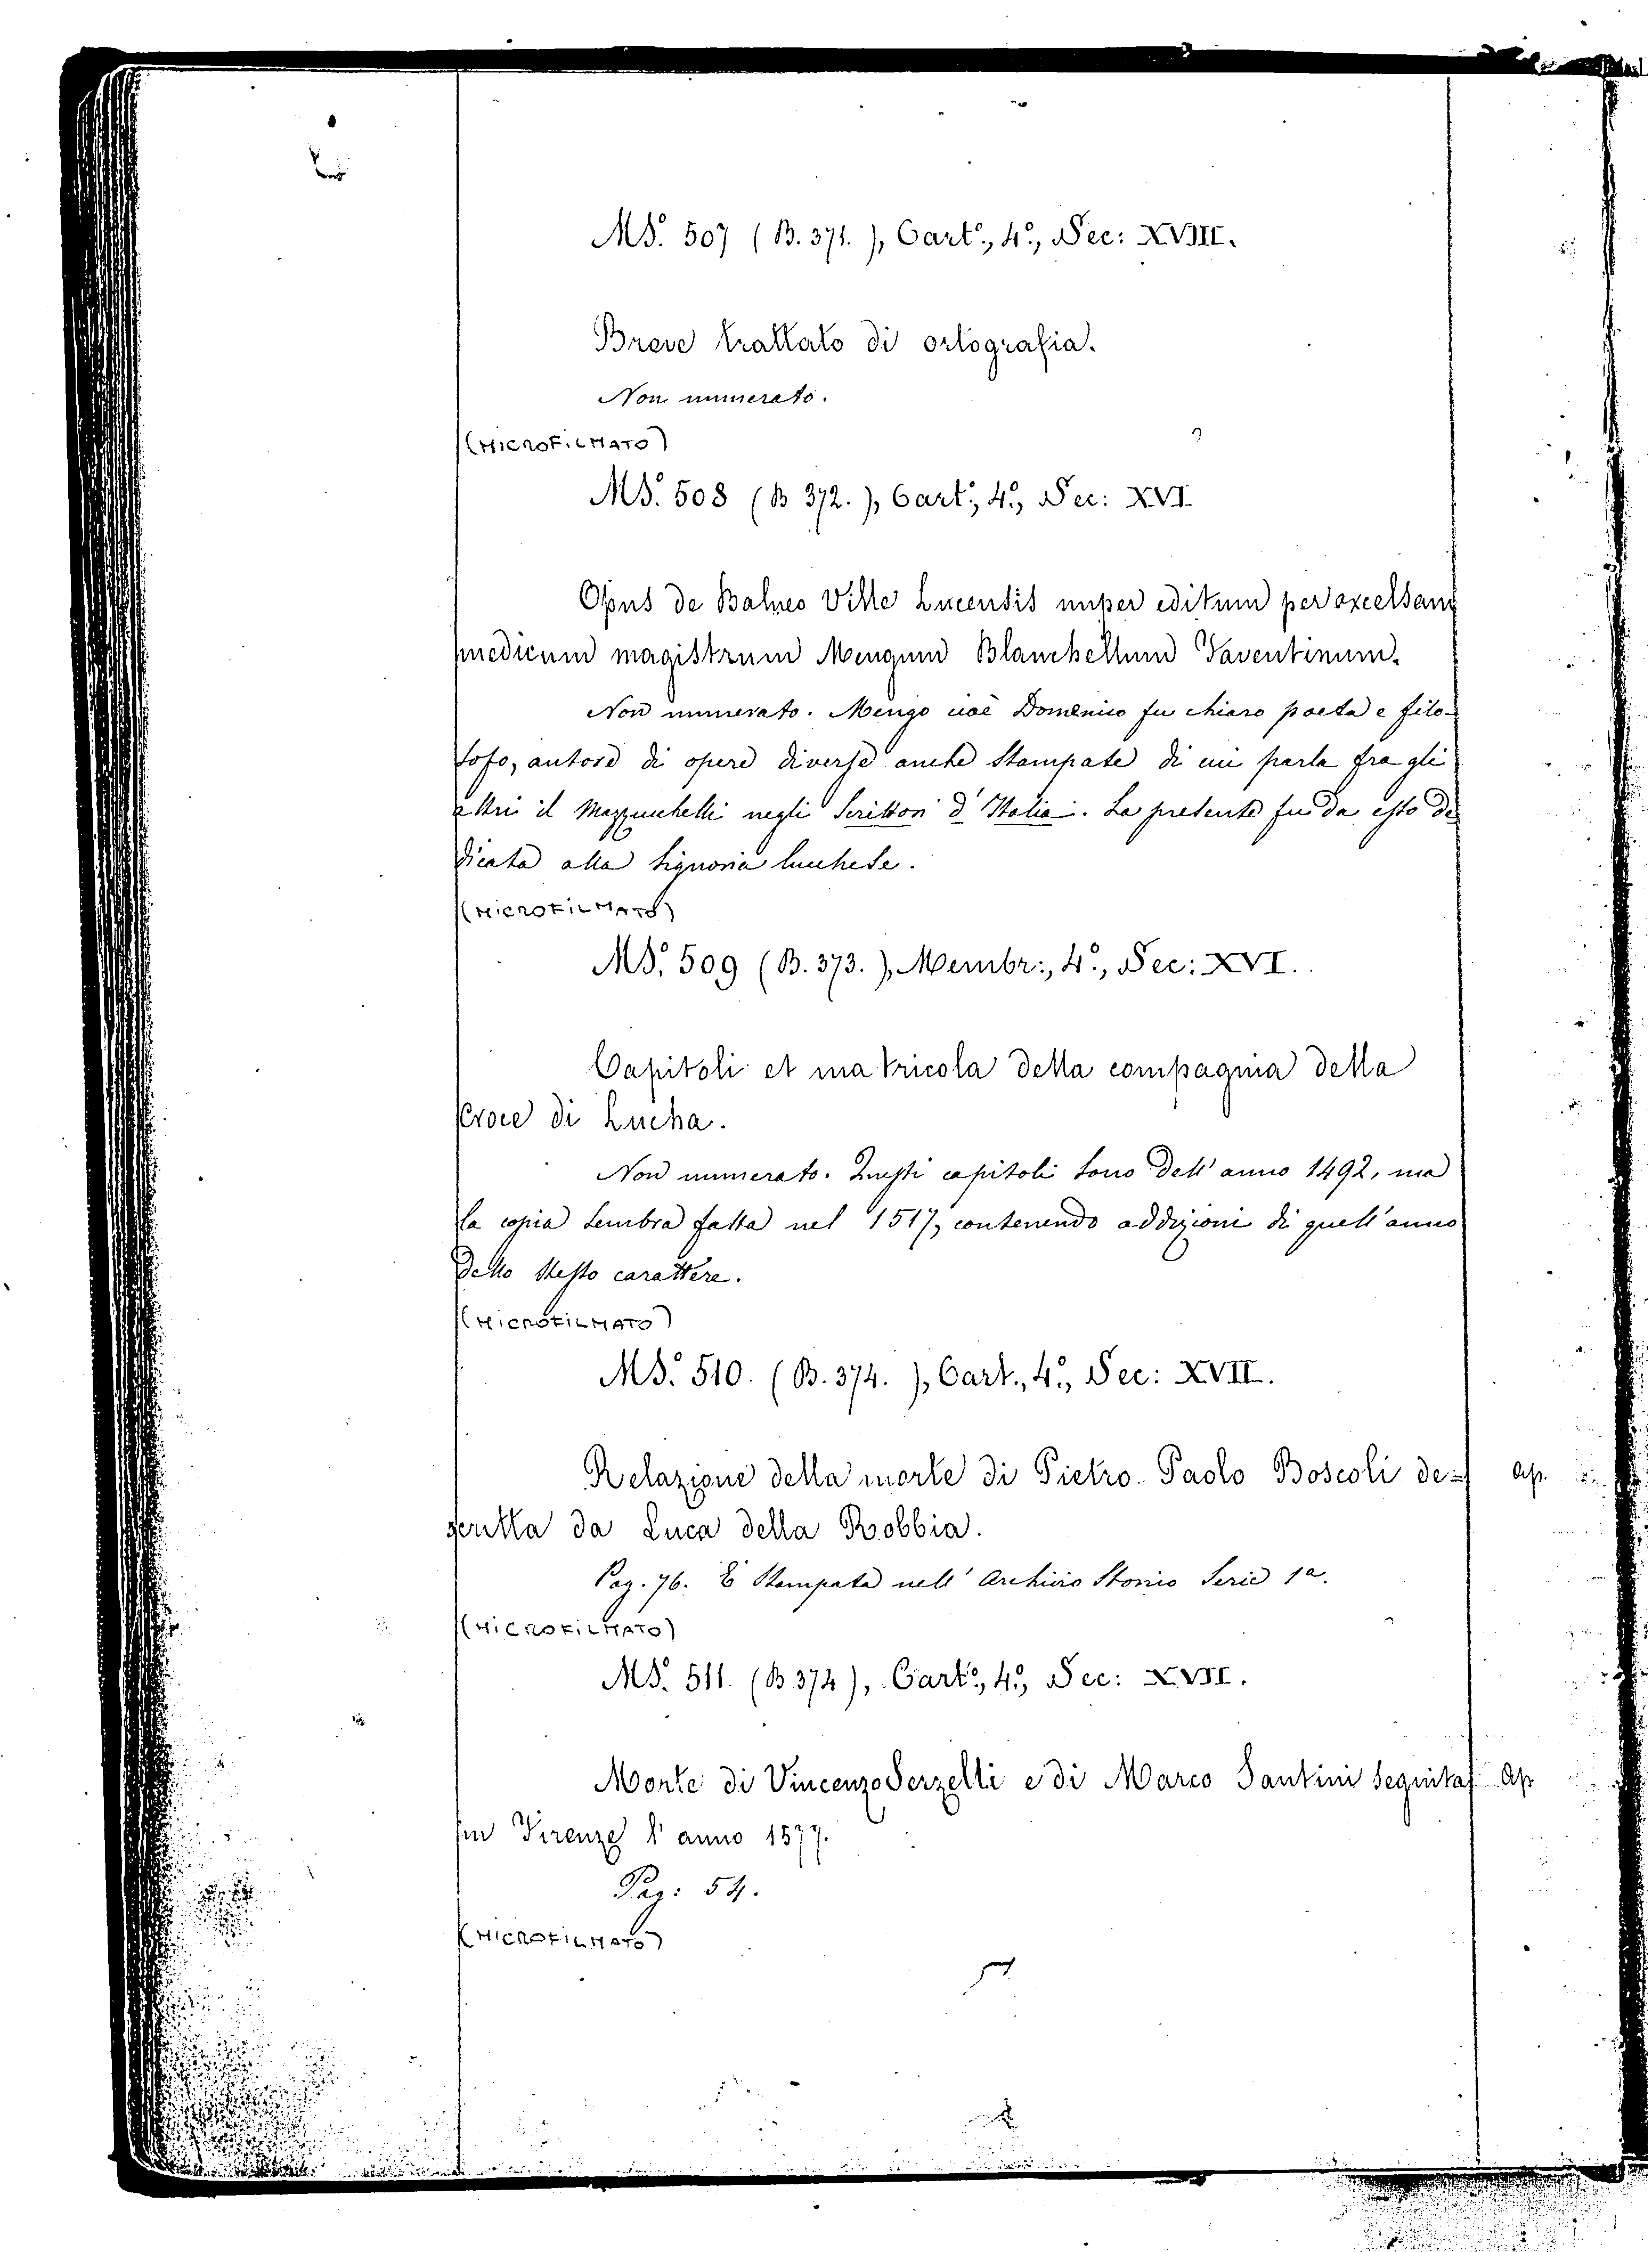 MS. 507 (B. 371.), Cart.º, 4.º, Sec: XVIII.
Breve trattato di ortografia.
Non numerato.
(MICROFILMATO)
MS. 508 (B 372.), Cart.º, 4.º, Sec: XVI
Opus de Balneo Ville Lucensis nuper editum per excelsum
medicum magistrum Mengum Blanchellum Faventinum.
Non numerato. Mengo cioè Domenico fu chiaro poeta e filo-
sofo, autore di opere diverse anche stampate di cui parla fra gli
altri il Mazzucchelli negli Scrittori d'Italia. La presente fu da esso de
dicata alla Signoria lucchese.
(MICROFILMATO)
MS. 509 (B. 373.), Membr:, 4.º, Sec: XVI.
Capitoli et matricola della compagnia della
Croce di Lucha.
Non numerato. Questi capitoli sono dell'anno 1492, ma
la copia sembra fatta nel 1517, contenendo addizioni di quell'anno
dello stesso carattere.
(MICROFILMATO)
MS. 510. (B. 374.), Cart., 4.º, Sec: XVII.
Relazione della morte di Pietro Paolo Boscoli de= ap.
scritta da Luca della Robbia.
Pag. 76. È stampata nell'Archivio Storico Serie 1a.
(MICROFILMATO)
MS. 511. (B 374), Cart.º, 4.º, Sec: XVII.
Morte di Vincenzo Serzelli e di Marco Santini seguita ap
in Firenze l'anno 1577.
Pag: 54.
(MICROFILMATO)